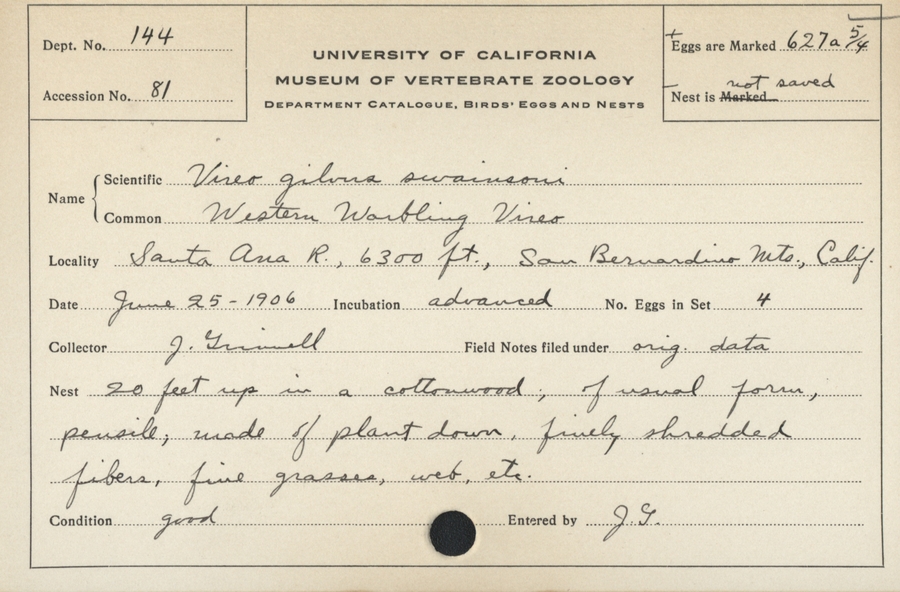 Dept. No. 144
Accession No. 81
UNIVERSITY OF CALIFORNIA
MUSEUM OF VERTEBRATE ZOOLOGY
DEPARTMENT CATALOGUE, BIRDS' EGGS AND NESTS
+ Eggs are Marked 627a 5/4
not saved
Nest is Marked
Name
Scientific Vireo gilvus swainsoni
Common Western Warbling Vireo
Locality Santa Ana R., 6300 ft., San Bernardino Mts., Calif.
Date June 25-1906 Incubation advanced No. Eggs in Set 4
Collector J. Grinnell Field Notes filed under orig. data
Nest 20 feet up in a cottonwood; of usual form,
pensile; made of plant down, finely shredded
fibers, fine grasses, web, etc.
Condition good Entered by J.G.